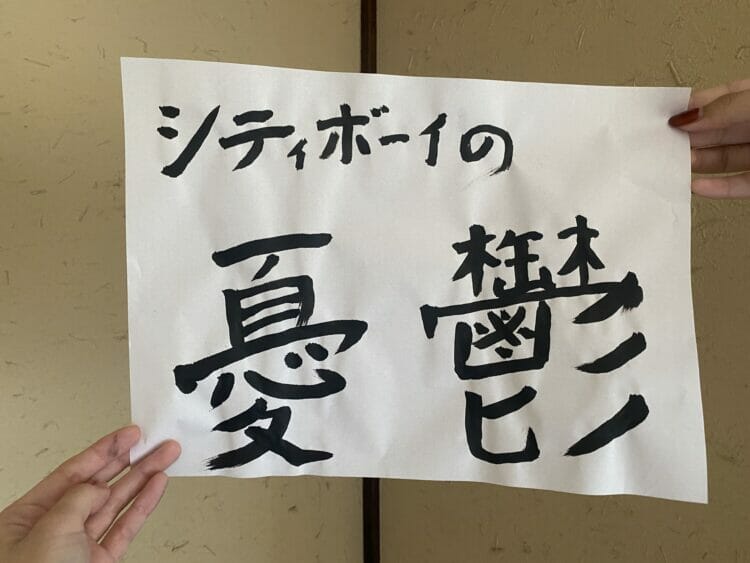 シティボーイの
憂鬱